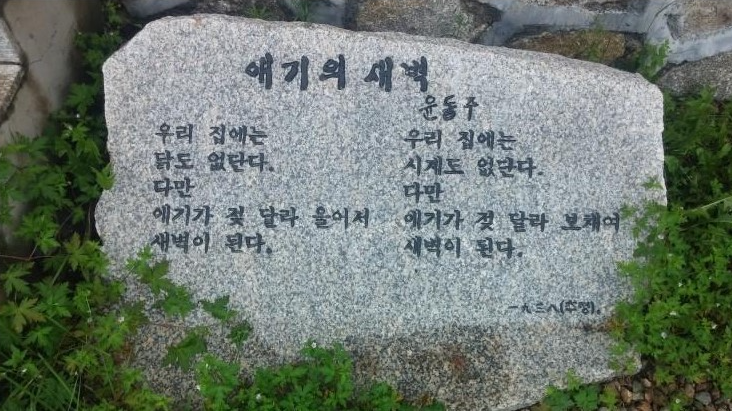 애기의 새벽
윤동주
우리 집에는
닭도 없단다.
다만
애기가 젖 달라 울어서
새벽이 된다.
우리 집에는
시계도 없단다.
다만
애기가 젖 달라 보채여
새벽이 된다.
一九三八(추정).